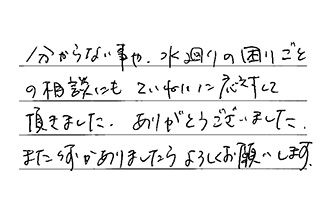 分からない事や、水廻りの困りごと
の相談にも ていねいに応対して
頂きました。ありがとうございました。
また何かありましたらよろしくお願いします。